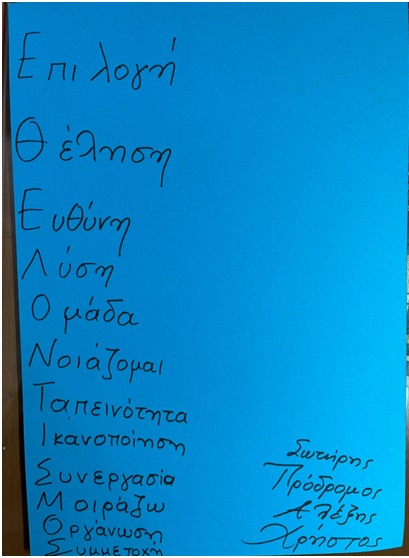 Επιλογή
Θέληση
Ευθύνη
Λύση
Ομάδα
Νοιάζομαι
Ταπεινότητα
Ικανοποίηση
Συνεργασία
Μοιράζω
Οργάνωση
Συμμετοχή
Σωτήρης
Πρόδρομος
Αλέξης
Χρήστος